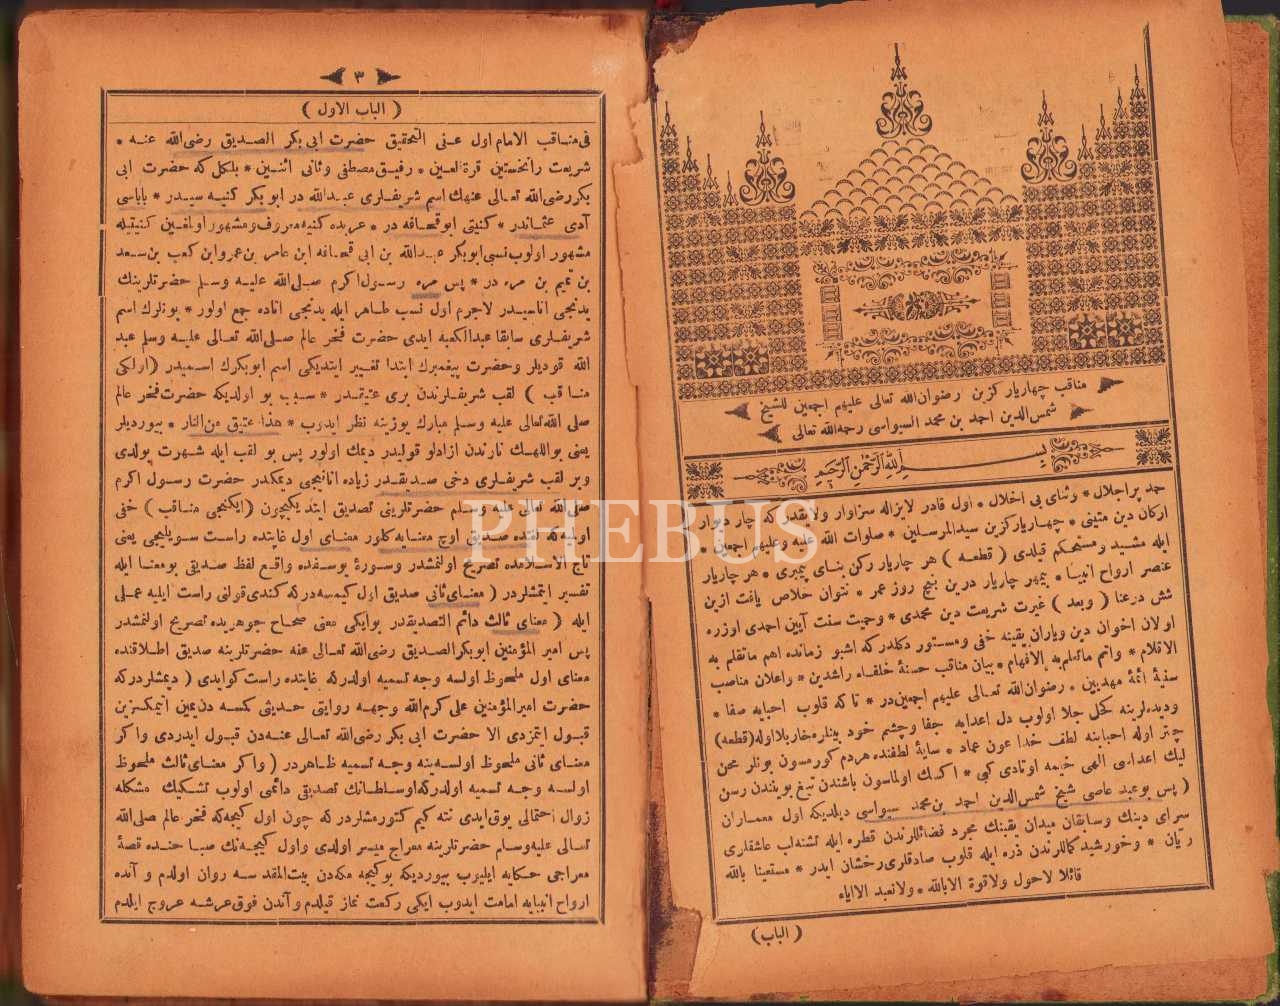 مناقب چهاريار كزين رضوان الله تعالى عليهم اجمعين للشيخ
شمس الدين احمد بن محمد السيواسى رحمه الله تعالى
بسم الله الرحمن الرحيم
حمد پر اجلال * وثناى بى اخلال * اول قادر لايزاله سزاوار ولايقدر كه چار ديوار
اركان دين متينى * چهاريار كزين سيد المرسلين * صلوات الله عليه وعليهم اجمعين *
ايله مشيد ومستحكم قيلدى ( قطعه ) هر چاريار ركن بناى پيمبرى * هر چاريار
عنصر ارواح انبيا * بيمهر چاريار درين پنج روز عمر * نتوان خلاص يافت ازين
شش درعنا ( وبعد ) غيرت شريعت دين محمدى * وحميت سنت آيين احمدى اوزره
اولان اخوان دين وياران يقينه خفى ومستور دكلدر كه اشبو زمانده اهم ماتقلم به
الاقلام * واتم ماتعلم به الافهام * بيان مناقب حسنۀ خلفاء راشدين * واعلان مناصب
سنيۀ ائمۀ مهديين * رضوان الله تعالى عليهم اجمعين در * تا كه قلوب احبابه صفا *
وديده لرينه كحل جلا اولوب دل اعدايه جفا وچشم خود بينلره خار بلا اوله (قطعه)
چتر اوله احبابنه لطف خدا عون عماد * سايۀ لطفنده هردم كورمسون بونلر محن
ليك اعداسى الهى خيمه اوتادى كبى * اكسك اولماسون باشندن تيغ بويندن رسن
( پس بو عبد عاصى شيخ شمس الدين احمد بن محمد سيواسى ديلديكه اول معماران
سراى دينك وسابقان ميدان يقينك مجرد فضائللرندن قطره ايله تشنه لب عاشقلرى
ريان * وخورشيد كماللرندن ذره ايله قلوب صادقلرى رخشان ايدر * مستعينا بالله
قائلا لاحول ولاقوة الا بالله * ولانعبد الا اياه
( الباب )
٣
( الباب الاول )
فى مناقب الامام اول عنى التحقيق حضرت ابى بكر الصديق رضى الله عنه *
شريعت رانخستين قرة العين * رفيق مصطفى وثانى اثنين * بلكل كه حضرت ابى
بكر رضى الله تعالى عنهك اسم شريفلرى عبدالله در ابو بكر كنيه سيدر * باباسى
آدى عثماندر * كنيتى ابو قحافه در * عربده كنيه معروف ومشهور اولغين كنيتيله
مشهور اولوب نسبى ابو بكر عبدالله بن ابى قحافه ابن عامر بن عمرو ابن كعب بن سعد
بن تميم بن مره در * پس مره رسول اكرم صلى الله عليه وسلم حضرتلرينك
يدنجى اناسيدر لاجرم اول نسب طاهر ايله يدنجى اناده جمع اولور * بونلرك اسم
شريفلرى سابقا عبد الكعبه ايدى حضرت فخر عالم صلى الله تعالى عليه وسلم عبد
الله قوديلر وحضرت پيغمبرك ابتدا تغيير ايتديكى اسم ابوبكرك اسميدر (اولكى
مناقب ) لقب شريفلرندن برى عتيقدر * سبب بو اولديكه حضرت فخر عالم
صلى الله تعالى عليه وسلم مبارك يوزينه نظر ايدوب * هذا عتيق من النار * بيورديلر
يعنى بو اللهك نارندن ازادلو قوليدر ديمك اولور پس بو لقب ايله شهرت بولدى
وبر لقب شريفلرى دخى صديقدر زياده انانيجى ديمكدر حضرت رسول اكرم
صلى الله تعالى عليه وسلم حضرتلرينى تصديق ايتديكيچون (ايكنجى مناقب ) خفى
اولميه كه لغتده صديق اوچ معنايه كلور معناى اول غايتده راست سويليجى يعنى
تاج الاسلامده تصريح اولنمشدر وسورۀ يوسفده واقع لفظ صديقى بو معنا ايله
تفسير ايتمشلردر ( معناى ثانى صديق اول كيمسه دركه كندى قولنى راست ايليه عملى
ايله ( معناى ثالث دائم التصديقدر بو ايكى معنى صحاح جوهريده تصريح اولنمشدر
پس امير المؤمنين ابوبكر الصديق رضى الله تعالى عنه حضرتلرينه صديق اطلاقنده
معناى اول ملحوظ اولسه وجه تسميه اولدر كه غايتده راست كو ايدى ( ديمشلردر كه
حضرت امير المؤمنين على كرم الله وجهه روايتى حديثى كمسه دن يمين ايتمكسزين
قبول ايتمزدى الا حضرت ابى بكر رضى الله تعالى عنه دن قبول ايدردى واكر
معناى ثانى ملحوظ اولسه ينه وجه تسميه ظاهردر ( واكر معناى ثالث ملحوظ
اولسه وجه تسميه اولدر كه اوسلطانك تصديقى دائمى اولوب تشكيك مشكله
زوال احتمالى يوق ايدى نته كيم كتورمشلردر كه چون اول كيجه كه فخر عالم صلى الله
تعالى عليه وسلم حضرتلرينه معراج ميسر اولدى واول كيجه نك صباحنده قصۀ
معراجى حكايه ايليوب بيورديكه بو كيجه مكه دن بيت المقدسه روان اولدم وآنده
ارواح انبيايه امامت ايدوب ايكى ركعت نماز قيلدم وآندن فوق عرشه عروج ايلدم
PHEBUS